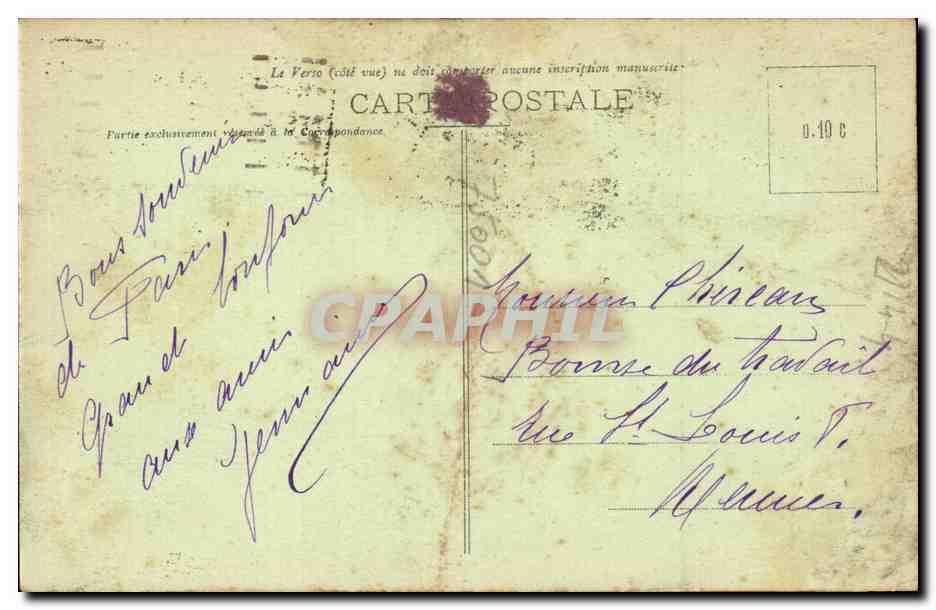 Le Verso (côté vue) ne doit comporter aucune inscription manuscrite
CARTE POSTALE
Partie exclusivement réservée à la Correspondance
0.10 c
Bons Souvenirs
de Paris
Grand et
aux amis
Monsieur Chireau
Bourse du travail
rue St Louis
Rennes.
CPAPHIL